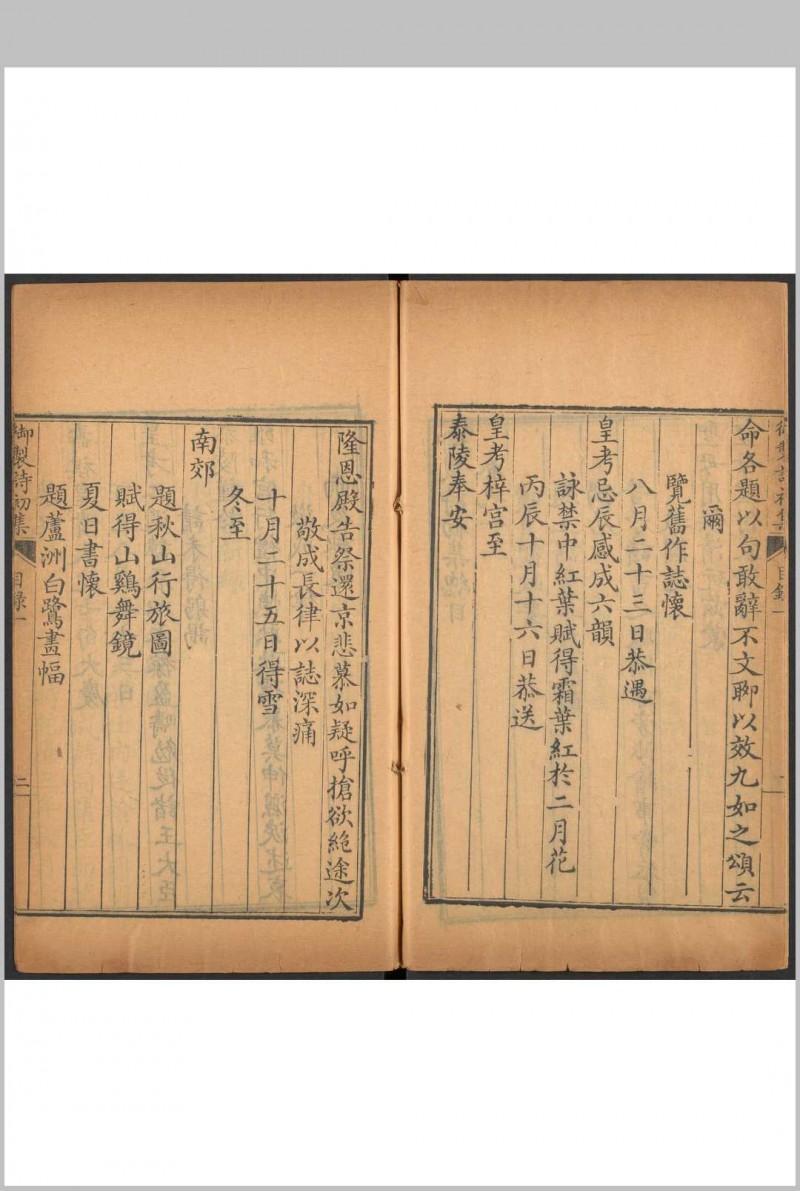 命各題以句敢辭不文聊以效九如之頌云
爾
覽舊作誌懷
八月二十三日恭遇
皇考忌辰感成六韻
詠禁中紅葉賦得霜葉紅於二月花
丙辰十月十六日恭送
皇考梓宮至
泰陵奉安
隆恩殿告祭還京悲慕如疑呼搶欲絕途次
敬成長律以誌深痛
十月二十五日得雪
冬至
南郊
題秋山行旅圖
賦得山鷄舞鏡
夏日書懷
題蘆洲白鷺畫幅
御製詩初集 目錄一 二